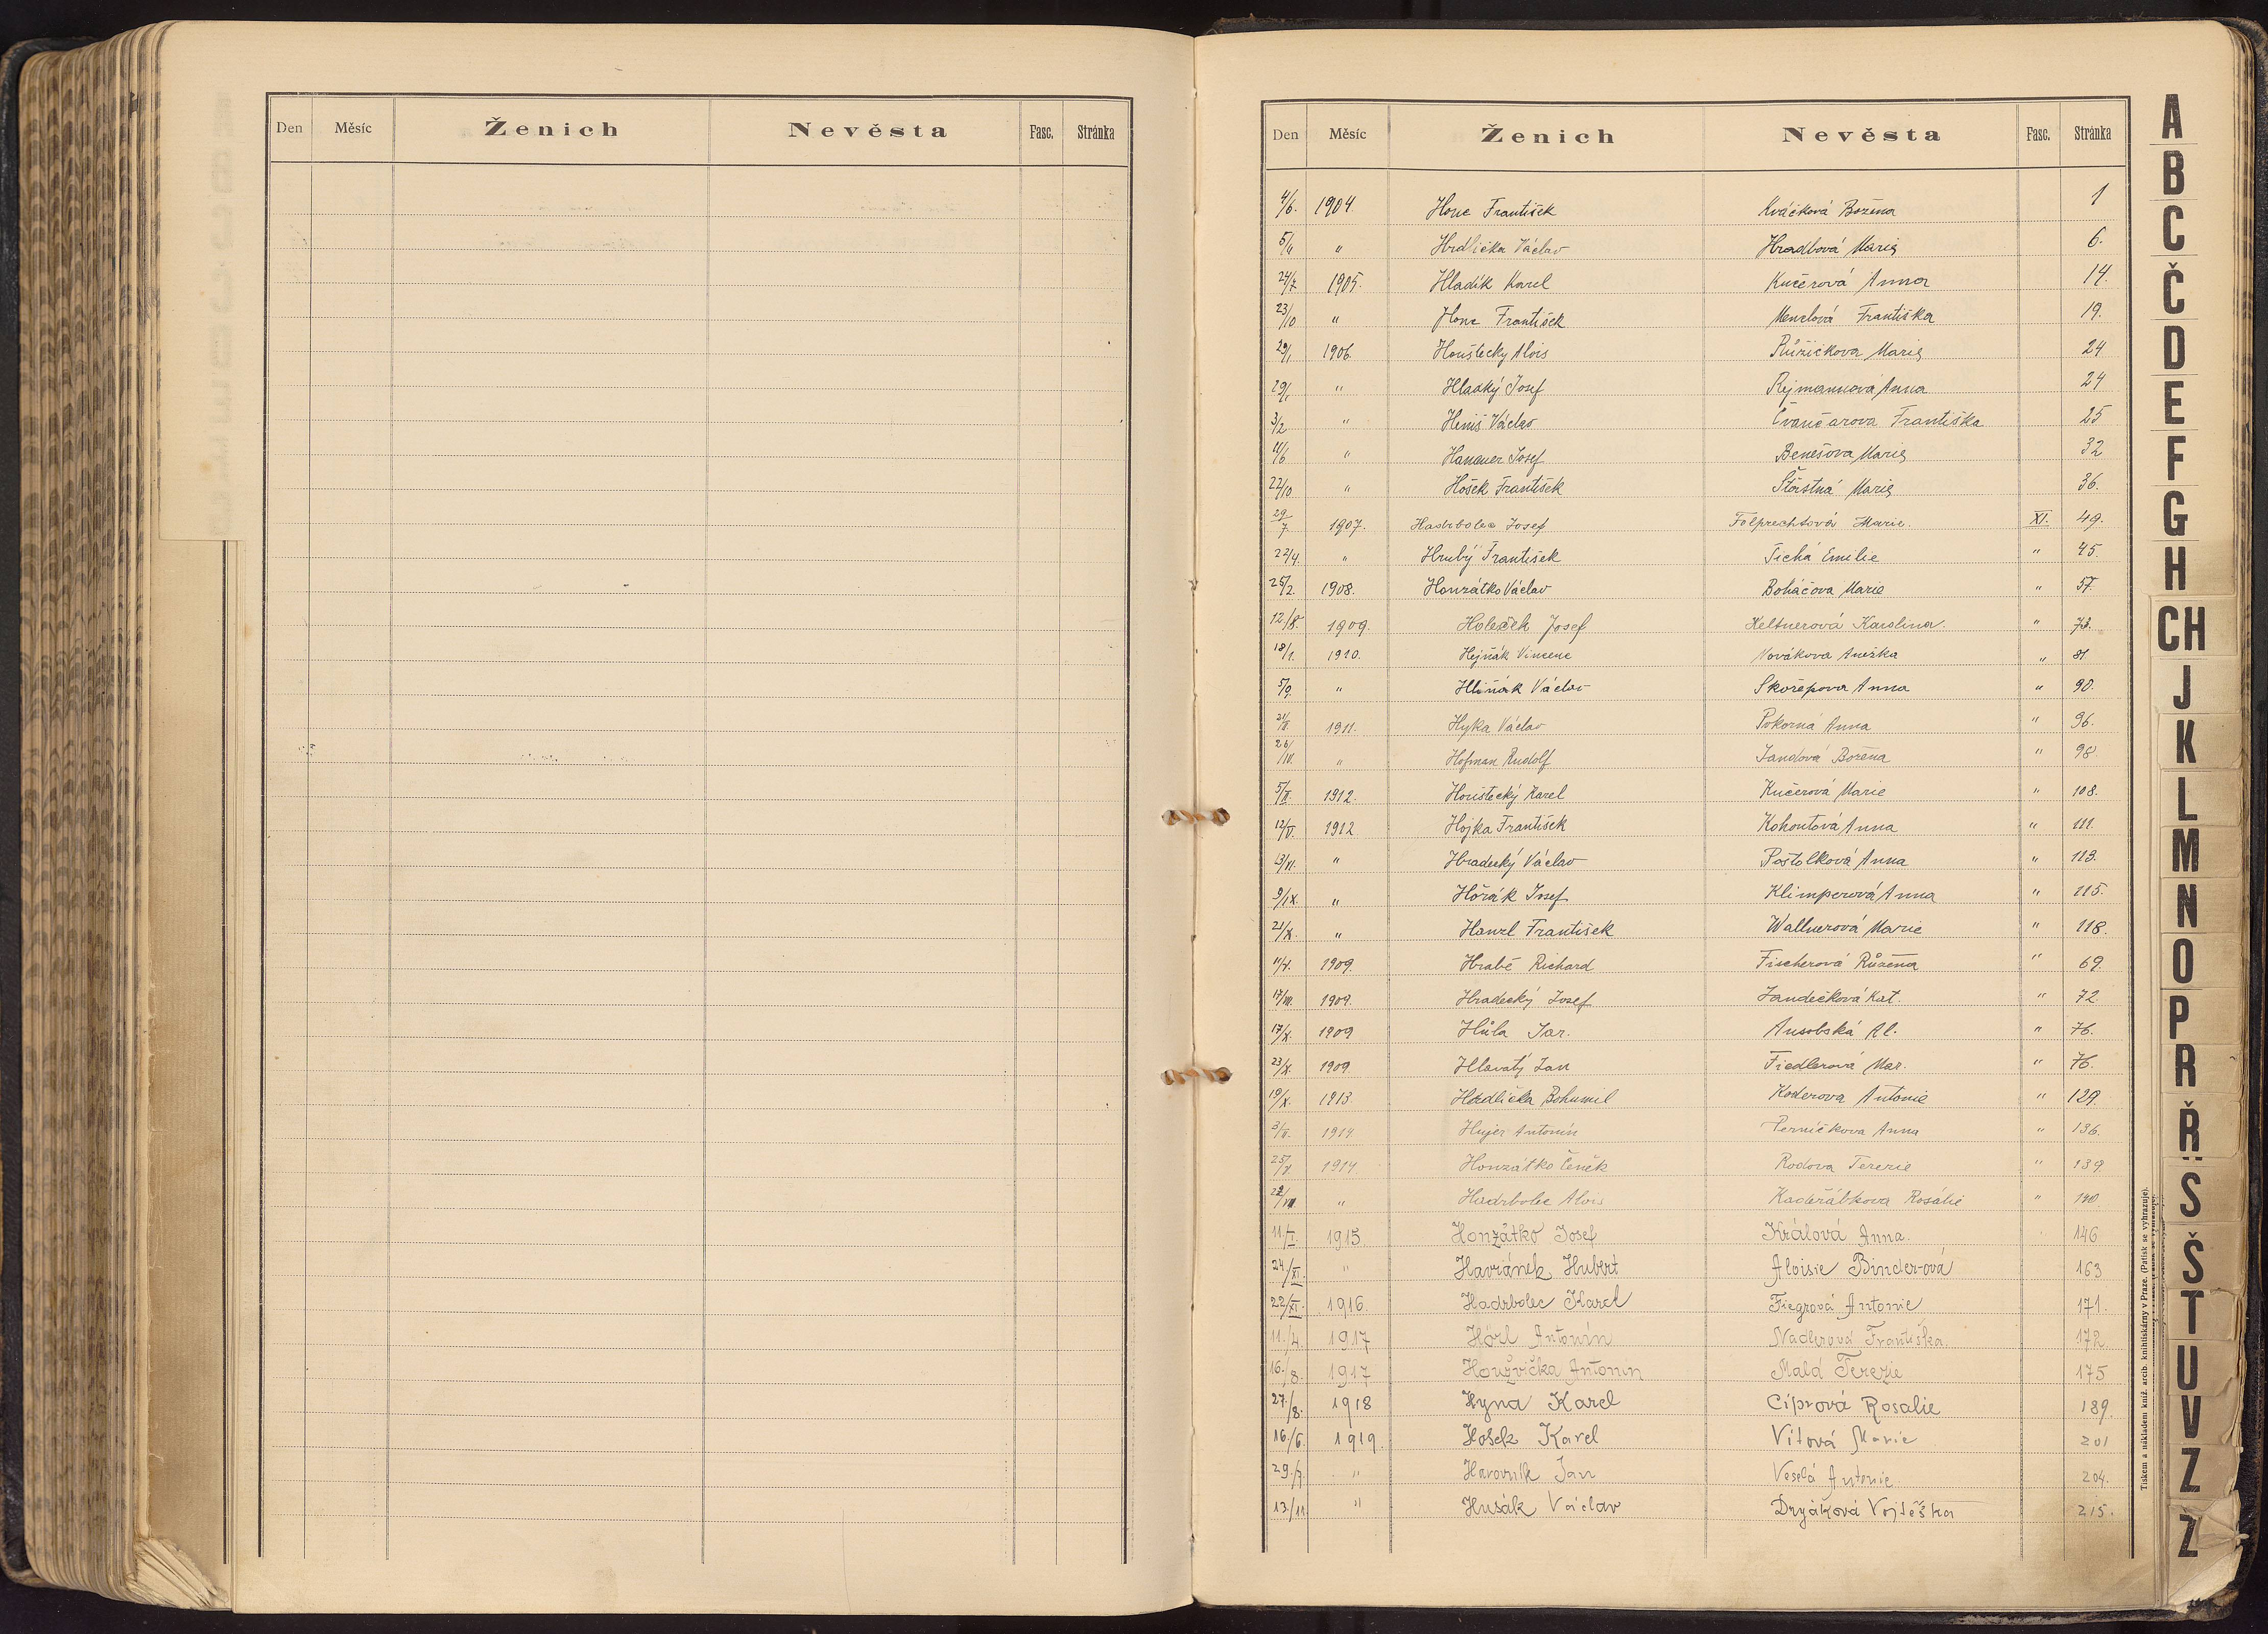 Den Měsíc Ženich Nevěsta Fasc. Stránka
Den Měsíc Ženich Nevěsta Fasc. Stránka
4/6. 1904. Honc František Kváčková Božena 1
5/11 " Hrdlička Václav Hradbová Marie 6.
24/7. 1905. Hladík Karel Kučerová Anna 14.
23/10 " Honc František Menclová Františka 19.
29/1 1906. Houštecky Alois Růžičkova Marie 24
29/1 " Hladký Josef Rejmannova Anna 24
3/2 " Heniš Václav Čvančarova Františka 25
11/6 " Hanauer Josef Benešova Marie 32
22/10 " Hošek František Šťastná Marie 36.
29/7 1907. Hadrbolec Josef Folprechtová Marie. XI. 49.
22/4. " Hrubý František Tichá Emilie " 45.
25/2. 1908. Honzátko Václav Boháčova Marie " 57.
12/8. 1909. Holeček Josef Keltnerová Karolina. " 73.
18/1. 1910. Hejňák Vincenc Novákova Anežka " 81
5/9. " Hliňák Václav Skořepova Anna " 90.
21/II. 1911. Hyka Václav Pokorná Anna " 96.
26/IV. " Hofman Rudolf Jandová Božena " 98.
5/II. 1912. Houštecký Karel Kučerová Marie " 108.
12/V. 1912 Hojka František Kohoutová Anna " 111.
13/VI. " Hradecký Václav Poštolková Anna " 113.
9/IX. " Hořák Josef Klimperová Anna " 115.
21/X. " Hanzl František Wallnerová Marie " 118.
11/4. 1909. Hrabě Richard Fischerová Růžena " 69.
17/VII. 1909. Hradecký Josef Jandečková Kat. " 72.
17/X. 1909 Hůla Jar. Ansobská Al. " 76.
23/X. 1909 Hlavatý Jan Fiedlerová Mar. " 76.
19/X. 1913. Hrdlička Bohumil Koderova Antonie " 129.
3/II. 1914. Hujer Antonín Perničkova Anna " 136.
25/V. 1914 Honzátko Čeněk Rodova Terezie " 139.
22/VII " Hadrbolec Alois Kadeřábkova Rosálie " 140.
11./I. 1915. Honzátko Josef Králová Anna. 146
24/XI. " Havránek Hubert Aloisie Binder-ová 163
22/XI. 1916. Hadrbolec Karel Fiegrová Antonie 171.
11./4. 1917 Hörl Antonín Nadlerová Františka. 172.
16./8. 1917 Houžvička Antonín Malá Terezie 175
27./8. 1918 Hyna Karel Cíprová Rosalie 189.
16./6. 1919. Hošek Karel Vítová Marie 201
29./7. " Harovník Jan Veselá Antonie 204.
13/11. " Husák Václav Dryáková Vojtěška 215.
Tiskem a nákladem kniž. arcib. knihtiskárny v Praze. (Patisk se vyhrazuje).
A
B
C
Č
D
E
F
G
H
CH
J
K
L
M
N
O
P
R
Ř
S
Š
T
U
V
Z
Ž